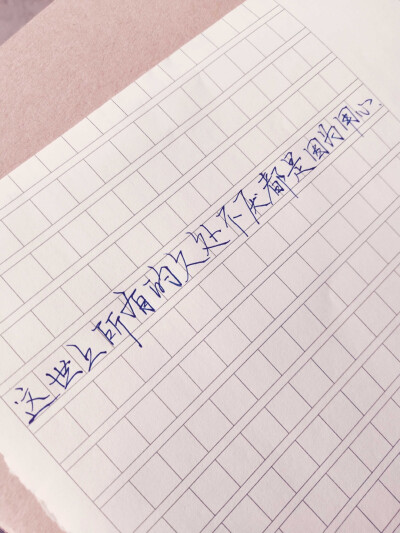 这世上所有的久处不厌都是因为用心